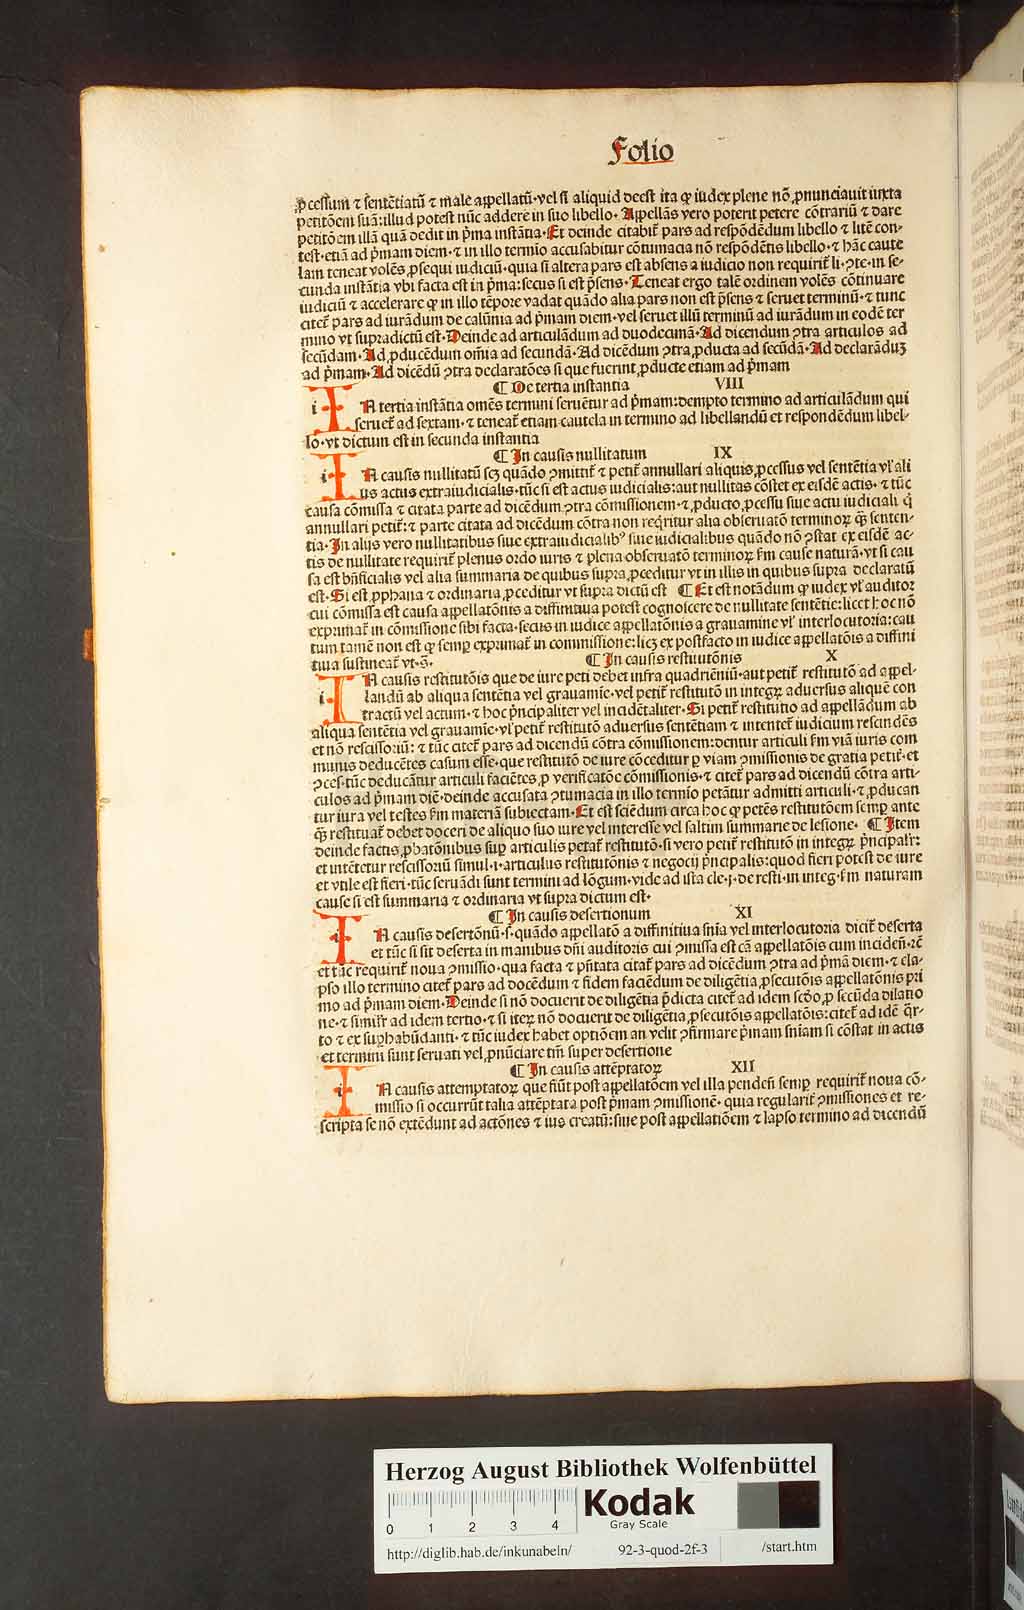 Folio
ꝓcessum ⁊ sentētiatū ⁊ male appellatū·vel si aliquid deest ita ꝙ iudex plene nō ꝓnunciauit iuxta
petitōem suā:illud potest nūc addere in suo libello·Appellās vero poterit petere cōtrariū ⁊ dare
petitōem illā quā dedit in p̄ma instātia·Et deinde citabit̄ pars ad respōdēdum libello ⁊ litē con-
test·etiā ad p̄mam diem·⁊ in illo termio accusabitur cōtumacia nō respōdētis libello·⁊ hāc caute
lam teneat volēs ꝓsequi iudiciū·quia si altera pars est absens a iudicio non requirit̄ li·ꝯte·in se-
cunda instātia vbi facta est in p̄ma:secus si est p̄sens·Teneat ergo talē ordinem volēs cōtinuare
iudiciū ⁊ accelerare ꝙ in illo tēpore vadat quādo alia pars non est p̄sens ⁊ seruet terminū·⁊ tunc
citet̄ pars ad iurādum de calūnia ad p̄mam diem·vel seruet illū terminū ad iurādum in eodē ter
mino vt supradictū est·Deinde ad articulādum ad duodecimā·Ad dicendum ꝯtra articulos ad
secūdam·Ad ꝓducēdum om̄ia ad secundā·Ad dicēdum ꝯtra ꝓducta ad secūdā·Ad declarāduꝫ
ad p̄mam·Ad dicēdū ꝯtra declaratōes si que fuerint ꝓducte etiam ad p̄mam
¶ De tertia instantia VIII
iN tertia instātia omēs termini seruētur ad p̄mam:dempto termino ad articulādum qui
seruet̄ ad sextam·⁊ teneat̄ etiam cautela in termino ad libellandū et respondēdum libel-
lo·vt dictum est in secunda instantia
¶ In causis nullitatum IX
iN causis nullitatū scꝫ quādo ꝯmittit̄ ⁊ petit̄ annullari aliquis ꝓcessus vel sentētia vl̄ ali
us actus extraiudicialis·tūc si est actus iudicialis:aut nullitas cōstet ex eisdē actis·⁊ tūc
causa cōmissa ⁊ citata parte ad dicēdum ꝯtra cōmissionem·⁊ ꝓducto ꝓcessu siue actu iudiciali q̄
annullari petit̄:⁊ parte citata ad dicēdum cōtra non req̄ritur alia obseruatō terminoꝝ ꝙ̄ senten-
tia·In alijs vero nullitatibus siue extraiudicialibꝰ siue iudicialibus quādo nō ꝯstat ex eisdē ac-
tis de nullitate requirit̄ plenus ordo iuris ⁊ plena obseruatō terminoꝝ fm cause naturā·vt si cau
sa est bn̄ficialis vel alia summaria de quibus supra ꝓceditur vt in illis in quibus supra declaratū
est·Si est ꝓphana ⁊ ordinaria ꝓceditur vt supra dictū est ¶ Et est notādum ꝙ iudex vl̄ auditor
cui cōmissa est causa appellatōnis a diffinitiua potest cognoscere de nullitate sentētie:licet hoc nō
exprimat̄ in cōmissione sibi facta·secus in iudice appellatōnis a grauamine vl̄ interlocutoria:cau
tum tamē non est ꝙ semꝑ exprimat̄ in commissione:licꝫ ex postfacto in iudice appellatōis a diffini
tiua sustineat̄ vt·s̄· ¶ In causis restitutōnis X
iN causis restitutōis que de iure peti debet infra quadriēniū·aut petit̄ restitutō ad appel-
landū ab aliqua sententia vel grauamīe·vel petit̄ restitutō in integꝝ aduersus aliquē con
tractū vel actum·⁊ hoc p̄ncipaliter vel incidētaliter·Si petit̄ restitutio ad appellādum ab
aliqua sentētia vel grauamīe·vl̄ petit̄ restitutō aduersus sentētiam ⁊ intentet̄ iudicium rescindēs
et nō rescissoriū: ⁊ tūc citet̄ pars ad dicendū cōtra cōmissionem:dentur articuli fm viā iuris com
munis deducētes casum esse·que restitutō de iure cōceditur ꝑ viam ꝯmissionis de gratia petit̄·et
ꝯces·tūc deducātur articuli faciētes ꝓ verificatōe cōmissionis·⁊ citet̄ pars ad dicendū cōtra arti-
culos ad p̄mam diē·deinde accusata ꝯtumacia in illo termio petātur admitti articuli·⁊ ꝓducan
tur iura vel testes fm materiā subiectam·Et est sciēdum circa hoc ꝙ petēs restitutōem semꝑ ante
ꝙ̄ restituat̄ debet doceri de aliquo suo iure vel interesse vel saltim summarie de lesione· ¶ Item
deinde factis ꝓbatōnibus suꝑ articulis petat̄ restitutō·si vero petit̄ restitutō in integꝝ p̄ncipalr̄:
et intētetur rescissoriū simul·i·articulus restitutōnis ⁊ negocij p̄ncipalis:quod fieri potest de iure
et vtile est fieri·tūc seruādi sunt termini ad lōgum·vide ad ista cle·j·de resti·in integ·fm naturam
cause si est summaria ⁊ ordinaria vt supra dictum est·
¶ In causis desertionum XI
iN causis desertōnū·s·quādo appellatō a diffinitiua snīa vel interlocutoria dicit̄ deserta
et tūc si sit deserta in manibus dn̄i auditoris cui ꝯmissa est cā appellatōis cum inciden̄·⁊c̄
et tūc requirit̄ noua ꝯmissio·qua facta ⁊ p̄ntata citat̄ pars ad dicēdum ꝯtra ad p̄mā diem·⁊ ela-
pso illo termino citet̄ pars ad docēdum ⁊ fidem faciēdum de diligētia ꝓsecutōis appellatōnis pri
mo ad p̄mam diem·Deinde si nō docuerit de diligētia p̄dicta citet̄ ad idem scd̄o ꝓ secūda dilatio
ne·⁊ simlr̄ ad idem tertio·⁊ si iteꝝ nō docuerit de diligētia ꝓsecutōis appellatōis:citet̄ ad idē q̄r-
to ⁊ ex suꝑhabūdanti·⁊ tūc iudex habet optiōem an velit ꝯfirmare p̄mam sniam si cōstat in actis
et termini sunt seruati vel ꝓnūciare tm̄ super desertione
¶ In causis attēptatoꝝ XII
iN causis attemptatoꝝ que fiūt post appellatōem vel illa penden̄ semꝑ requirit̄ noua cō-
missio si occurrūt talia attēptata post p̄mam ꝯmissionē· quia regularit̄ ꝯmissiones et re-
scripta se nō extēdunt ad actōnes ⁊ ius creatū:siue post appellatiōem ⁊ lapso termino ad dicendū
Herzog August Bibliothek Wolfenbüttel
0 1 2 3 4
Kodak
Gray Scale
http://diglib.hab.de/inkunabeln/ 92-3-quod-2f-3 /start.htm